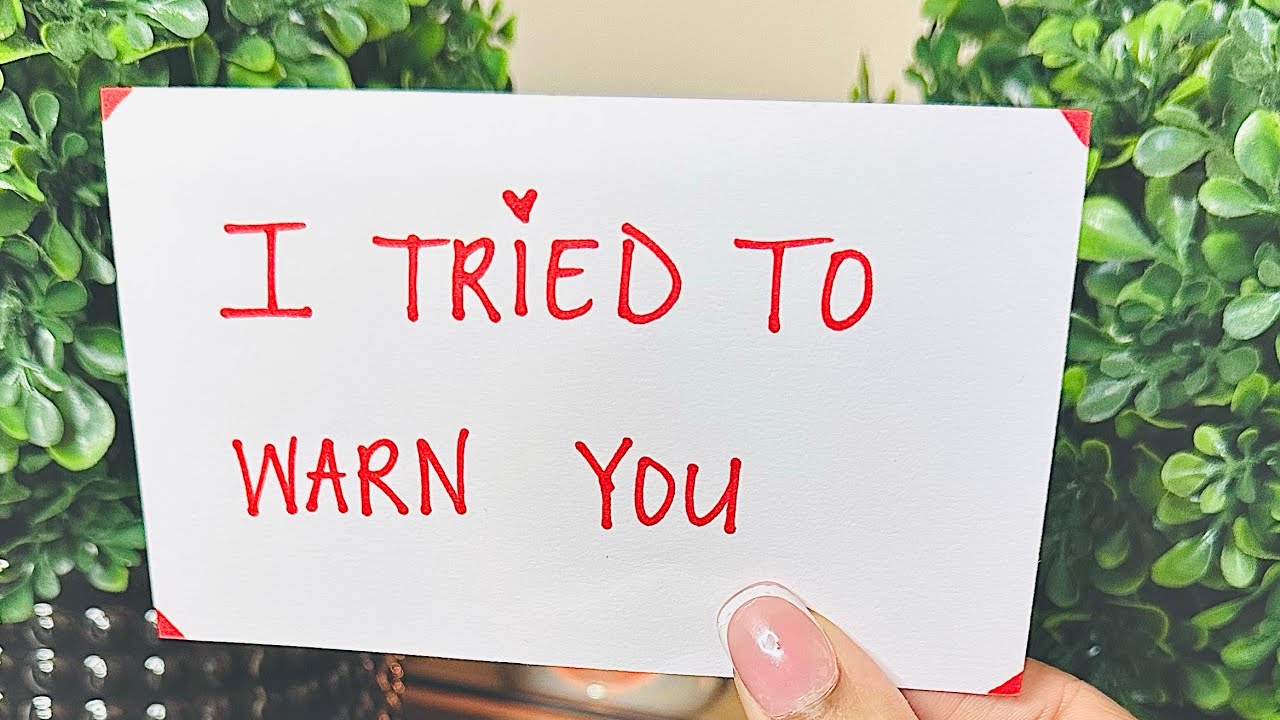 I TRiED TO
WARN YOU